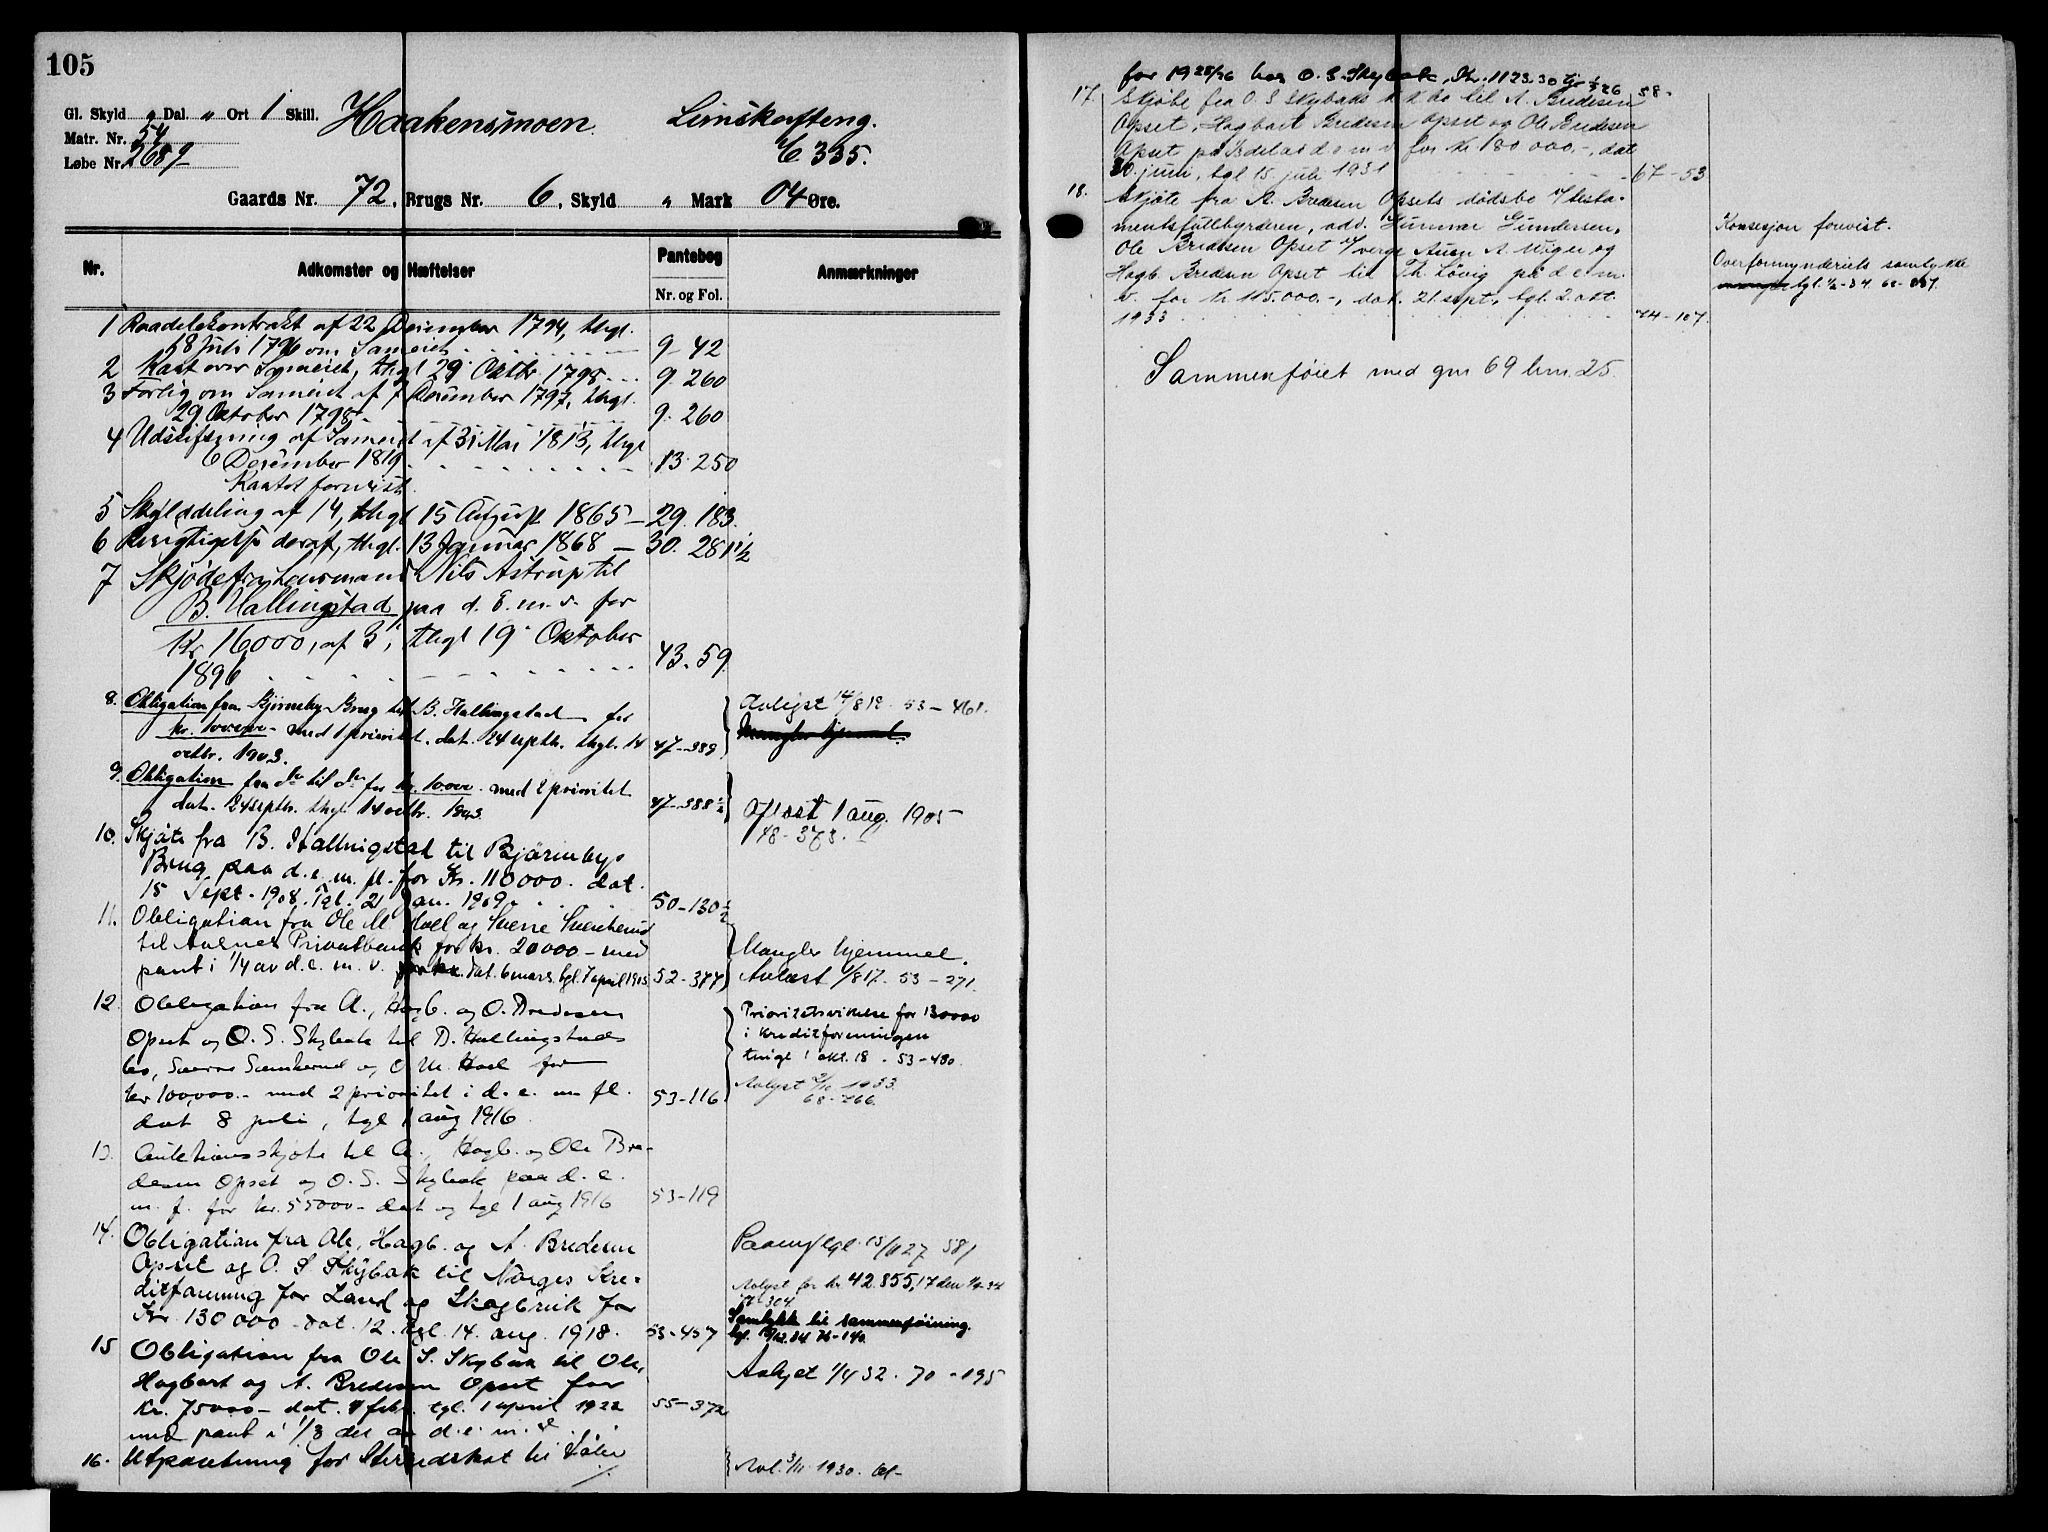 105
Gl. Skyld " Dal. " Ort 1 Skill. Haakensmoen. Limskafteng.
Matr. Nr. 54 E 335.
Løbe Nr. 2689
Gaards Nr. 72, Brugs Nr. 6, Skyld " Mark 04 Øre.
Nr. Adkomster og Hæftelser Pantebog Anmærkninger
Nr. og Fol.
1 Raadelskontrakt af 22 December 1794, thgl.
18 Juli 1796 om Sameiet 9-42
2 Kart over Sameiet, thgl 29 Oktbr 1798 9. 260
3 Forlig om Sameiet af 7 December 1797, thgl.
29 Oktober 1798 9. 260
4 Udskiftning af Sameiet af 31 Mai 1813, thgl
6 December 1819 13. 250
Kartet forevist.
5 Skylddeling af 14, thgl 15 August 1865 29. 183.
6 Berigtigelse deraf, thgl. 13 Januar 1868 30. 281 1/2
7 Skjøde fra Lensmand Nils Astrup til
B. Hallingstad paa d. E. m. v. for
Kr 16000, af 3, thgl 19 Oktober
1896 43. 59.
8. Obligation fra Bjørneby Brug til B. Hallingstad for
kr. 100000- med 1 prioritet. dat. 24 septbr. thgl. 14
octbr. 1903. 47-389
Avlyst 14/8 18. 53-461.
Mangler hjemmel.
9. Obligation fra do til do for kr. 10000 med 2 prioritet
dat. 24 septbr. thgl. 14 octbr. 1903. 47-388 1/2
Aflæst 1 aug. 1905
48-373.
10. Skjøte fra B. Hallingstad til Bjørneby
Brug paa d. e. m. fl. for Kr. 110000. dat.
15 Sept. 1908. Tgl. 21 Jan. 1909. 50-130 1/2
11. Obligation fra Ole M Hoel og Sverre
til Aasnes Privatbank for kr. 20000- med
pant i 1/4 av d. e. m. v. dat. 6 mars. tgl. 7 april 1915 52-377
Mangler hjemmel.
Avlæst 1/8 17. 53-271.
12. Obligation fra A., Hagb. og O. Bredesen
Opset og O. S. Skybak til B. Hallingstads
bo, Sverre og O. M. Hoel for
kr 100,000.- med 2 prioritet i d. e. m fl.
dat 8 juli, tgl 1 aug 1916. 53-116
Prioritetsvikelse for 130000
i Kreditforeningen
tingl 1 okt. 18. 53-480.
Avlyst 2/10 1933.
68-266.
13. Auktionsskjøte til A., Hagb. og Ole Bre-
desen Opset og O. S. Skybak paa d. e.
m. f. for kr. 55000- dat og tgl 1 aug 1916 53-119
14. Obligation fra Ole, Hagb. og A. Bredesen
Opset og O. S. Skybak til Norges Kre-
ditforening for Land og Skogbruk for
Kr. 130 000 dat. 12. tgl. 14. aug. 1918. 53-457
Avlyst for kr 42.855,17 den
Samtykke til sammenføining.
15 Obligation fra Ole S. Skybak til Ole,
Hagbart og A. Bredesen Opset for
kr. 75000- dat. 7 febr. tgl. 1 april 1922 55-372
med pant i 1/3 del av d. e. m. v.
Avlyst 1/4 32. 70-195
16. Utpantning for Herredskat til Våler
Avl. 3/11 1930.
for 1925/26 hos O. S. Skybak, Kr. 1123.30 58-
17. Skjøte fra O. S Skybaks k k bo til A. Bredesen
Opset, Hagbart Bredesen Opset og Ole Bredesen
Opset på d e m v for kr 180 000.-, dat
30. juni, tgl 15. juli 1931 67-53
18. Skjøte fra A. Bredesen Opsets dødsbo v/testa-
mentsfullbyrderen, adv. Gunnar Gundersen,
Ole Bredesen Opset v/verge og
Hagb. Bredesen Opset til Th. Løvig på d e m
v. for kr 115.000.-, dat. 21. sept., tgl. 2. okt.
1933 74-107.
Konsesjon forevist.
Overformynderiets samtykke
Sammenføiet med gnr 69 brn. 25.